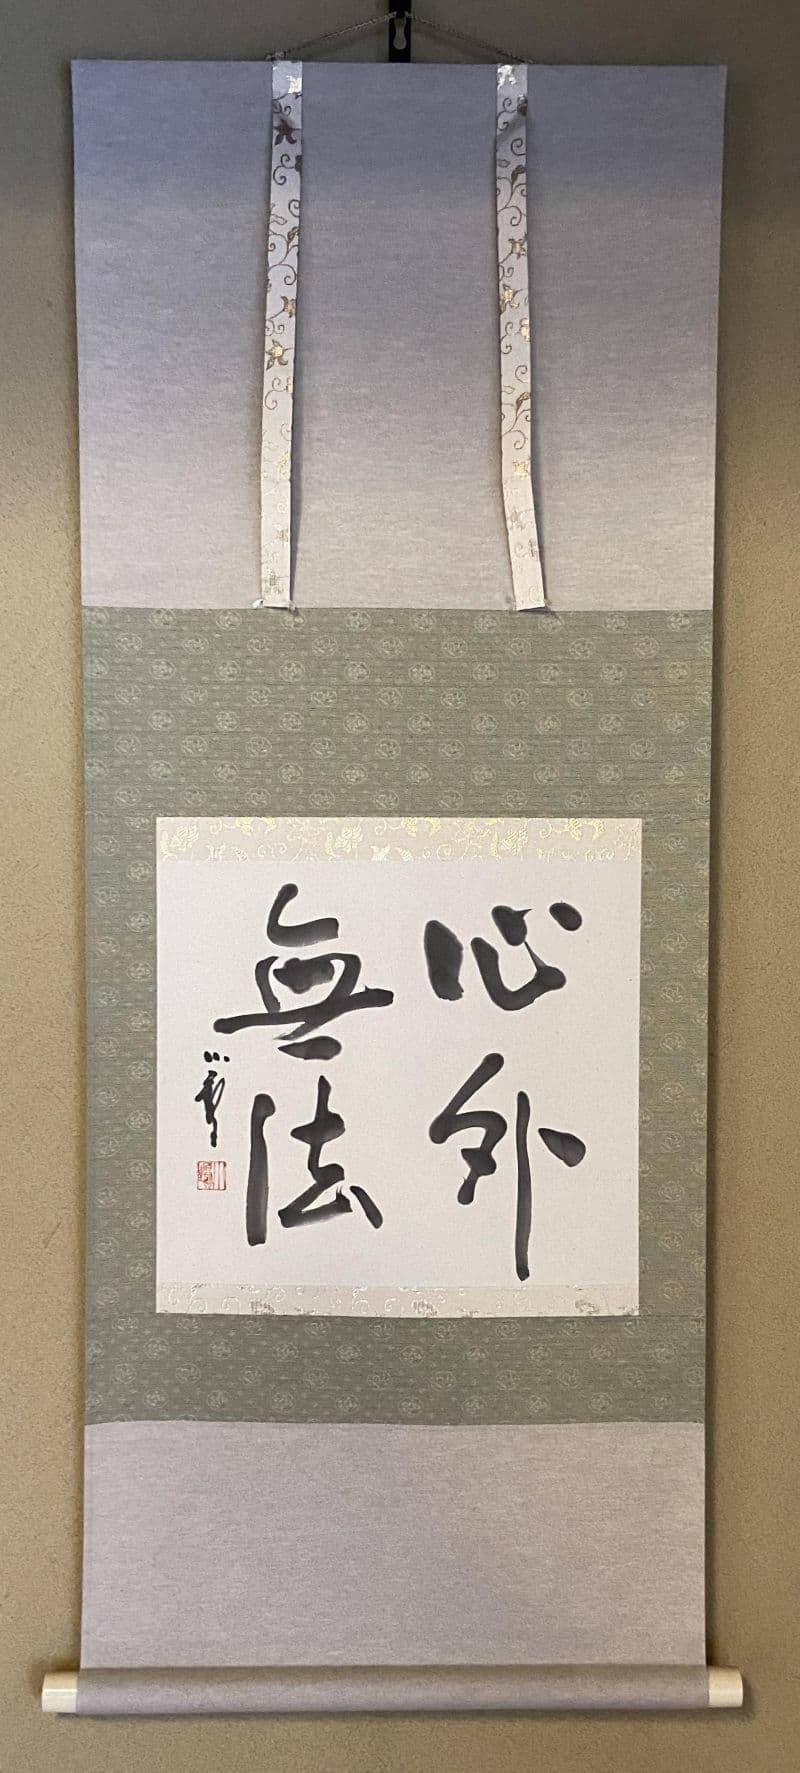 心外
無法